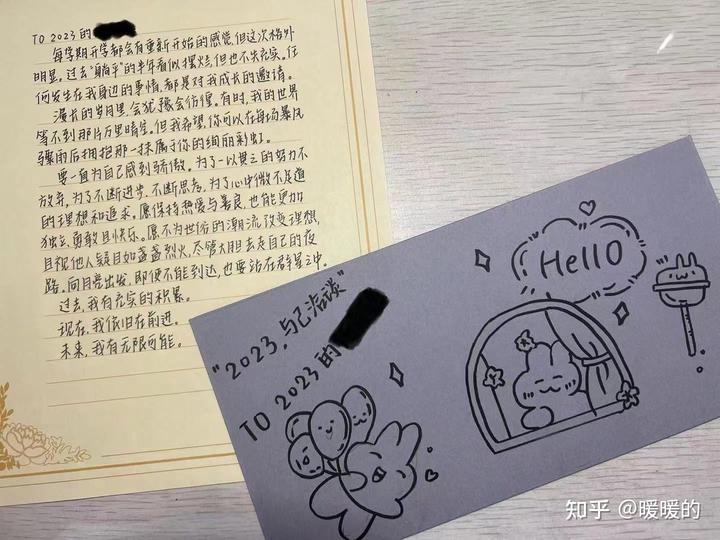 TO 2023的
每学期开学都会有重新开始的感觉,但这次格外
明显。过去"躺平"的半年看似摆烂,但也不失充实。任
何发生在我身边的事情,都是对我成长的邀请。
漫长的岁月里,会犹豫会彷徨。有时,我的世界
等不到那片万里晴空。但我希望,你可以在每场暴风
骤雨后拥抱那一抹属于你的绚丽彩虹。
要一直为自己感到骄傲。为了一以贯之的努力不
放弃,为了不断进步、不断思考,为了心中微不足道
的理想和追求。愿保持热爱与善良,也能更加
独立、勇敢且快乐。愿不为世俗的潮流改变理想,
且视他人疑目如盏盏烈火,尽管大胆去走自己的夜
路。向月亮出发,即使不能到达,也要站在群星之中。
过去,我有充实的积累。
现在,我依旧在前进。
未来,我有无限可能。
"2023,与己洽谈"
TO 2023的
Hello
知乎 @暖暖的